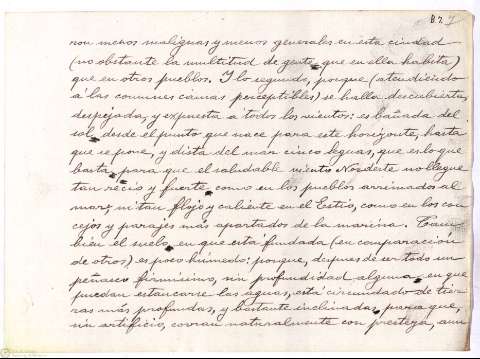 827
non menos malignas y menos generales en esta ciudad
(no obstante la multitud de gente, que en ella habita)
que en otros pueblos. Y lo segundo, porque (atendiendo
a las comunes causas perceptibles) se halla descubierta,
despejada, y expuesta a todos los vientos: es bañada del
sol, desde el punto que nace para este horizonte, hasta
que se pone, y dista del mar cinco leguas, que es lo que
basta, para que el saludable viento Nordeste no llegue
tan recio y fuerte, como en los pueblos arrimados al
mar; ni tan flojo y caliente en el Estío, como en los con
cejos y parajes más apartados de la marina. Tam
bién el suelo, en que está fundada (en comparación
de otros) es poco húmedo: porque, después de ser todo un
peñasco firmísimo, sin profundidad alguna, en que
puedan estancarse las aguas, está circundado de tie
rras más profundas, y bastante inclinadas, para que,
sin artificio, corran naturalmente con presteza, aun